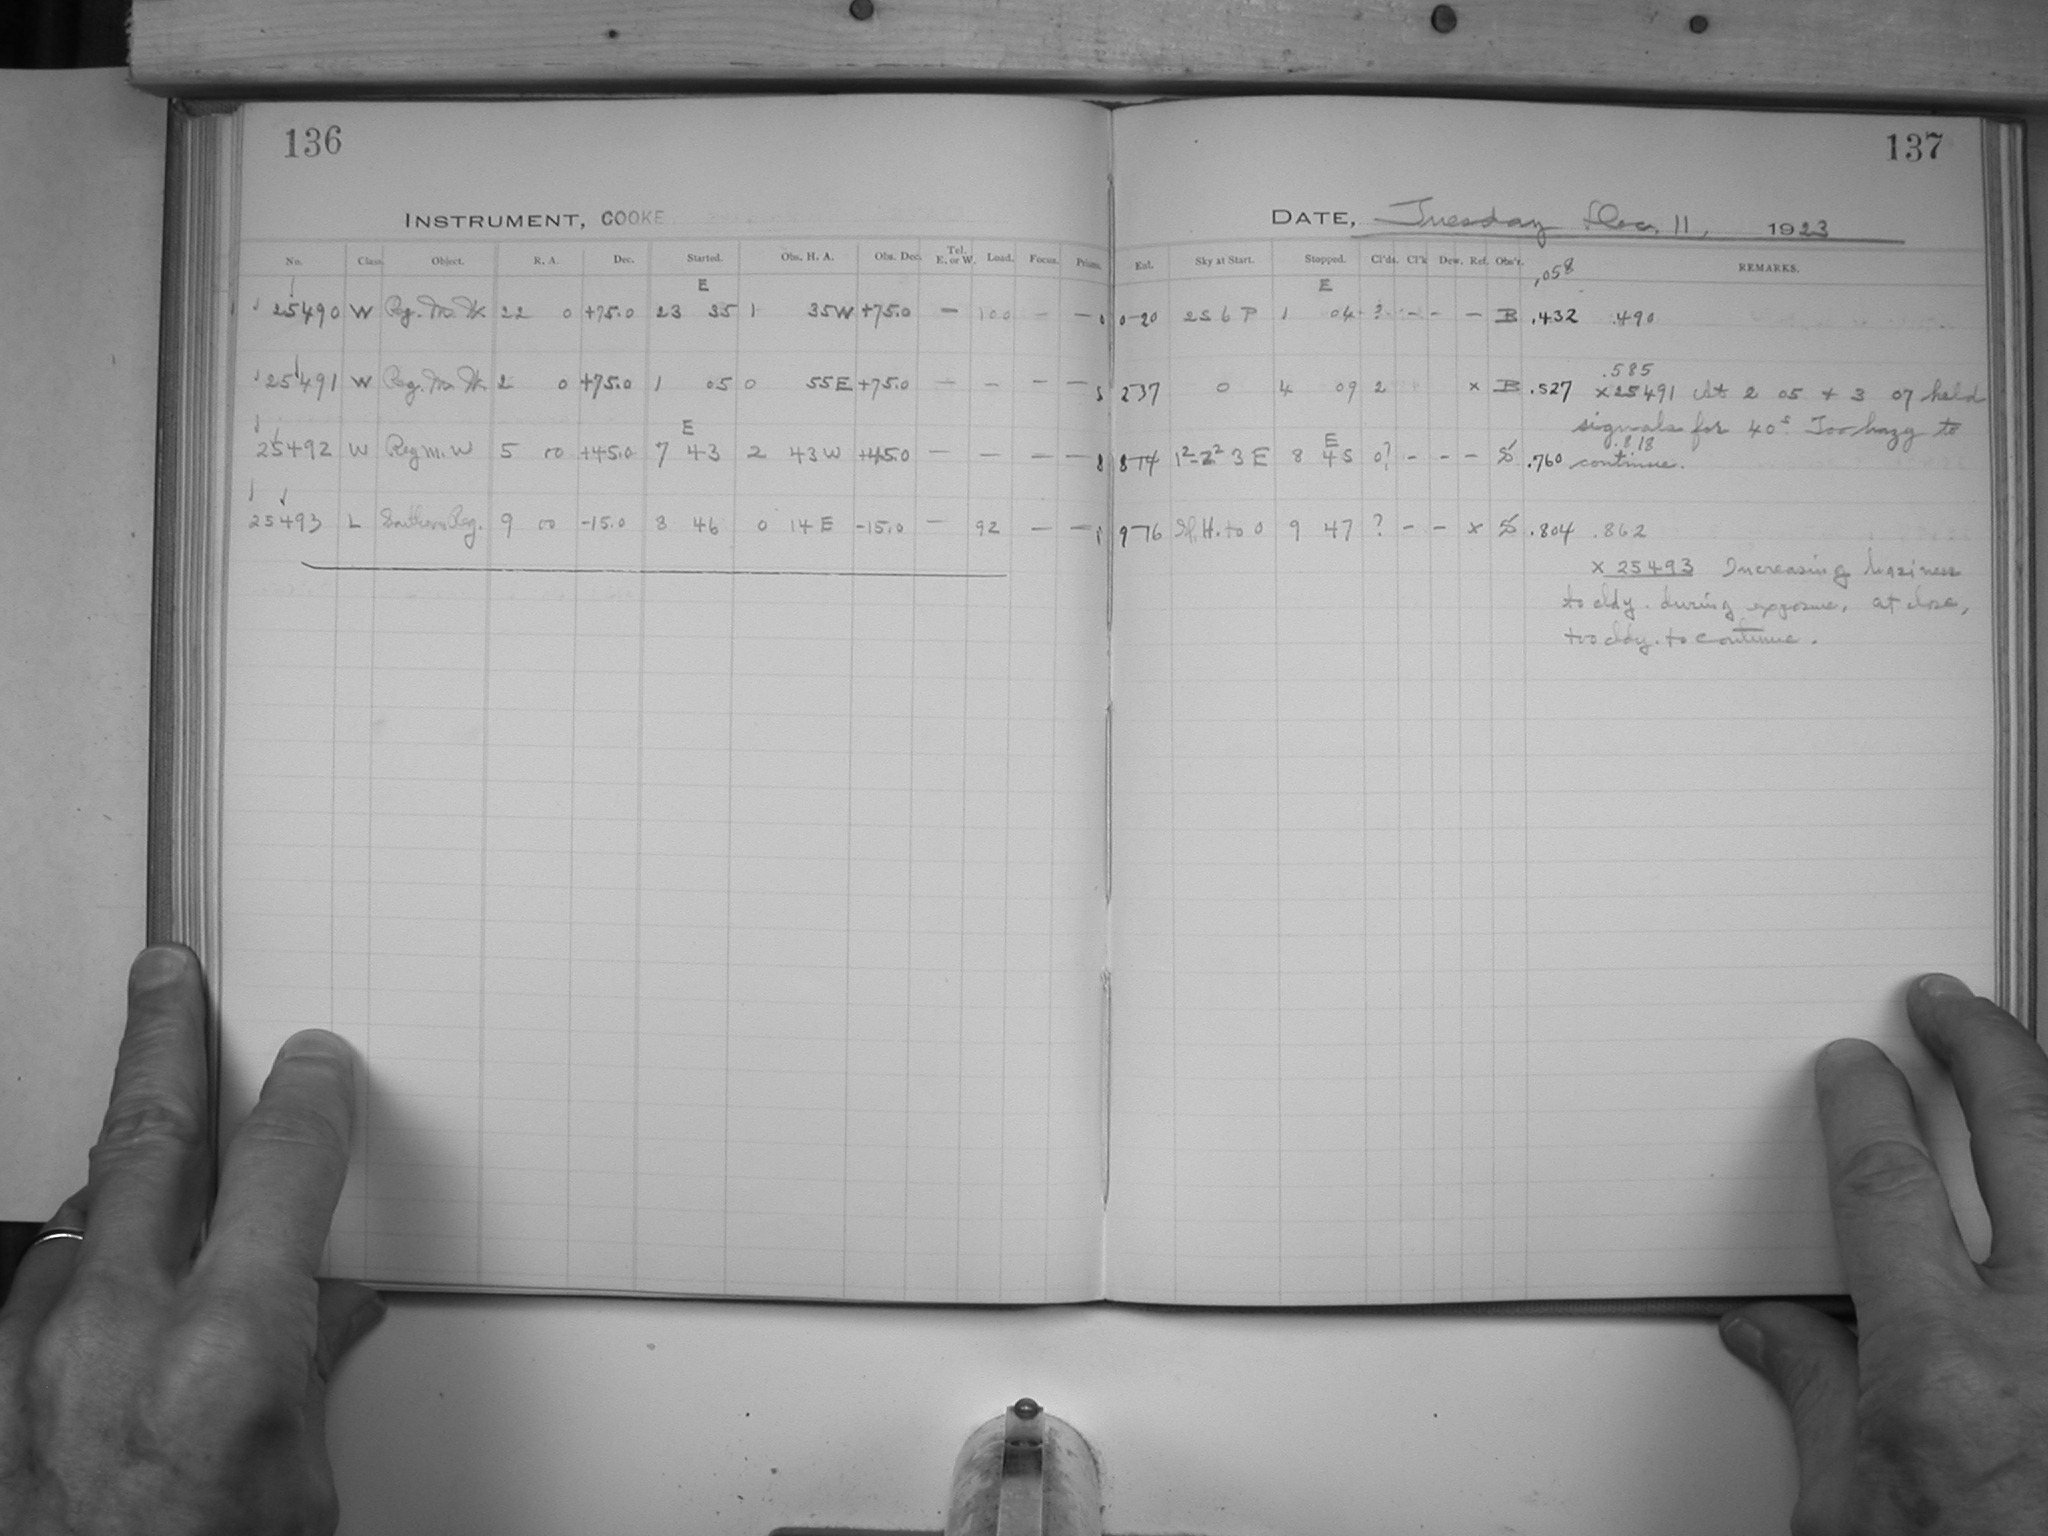 136
137
INSTRUMENT, COOKE
DATE, Tuesday Dec. 11, 1923
No. Class Object. R. A. Dec. Started. Obs. H. A. Obs. Dec. Tel. E. or W. Load. Focus. Prisms. Eal. Sky at Start. Stopped. Cl'ds. Cl'k Dew. Ref. Obs'r. REMARKS.
,058
E E
25490 W Reg. M. W. 22 0 +75.0 23 35 1 35W +75.0 — 100 — — 0 0 20 2 5 6 P 1 04 ? - - — B .432 .490
.585
25491 W Reg. M. W. 2 0 +75.0 1 05 0 55E +75.0 — — — — 5 2 37 0 4 09 2 x B .527 x25491 At 2 05 + 3 07 held
signals for 40s. Too hazy to
E E .818
25492 W Reg M. W 5 00 +45.0 7 43 2 43W +45.0 — — — — 8 8 14 1²-2² 3 E 8 45 0? - - - S .760 continue.
25493 L Southern Reg. 9 00 -15.0 8 46 0 14E -15.0 — 92 — — 9 16 Sl. H. to 0 9 47 ? - - x S .804 .862
x 25493 Increasing haziness
to cldy. during exposure, at close,
too cldy. to continue.